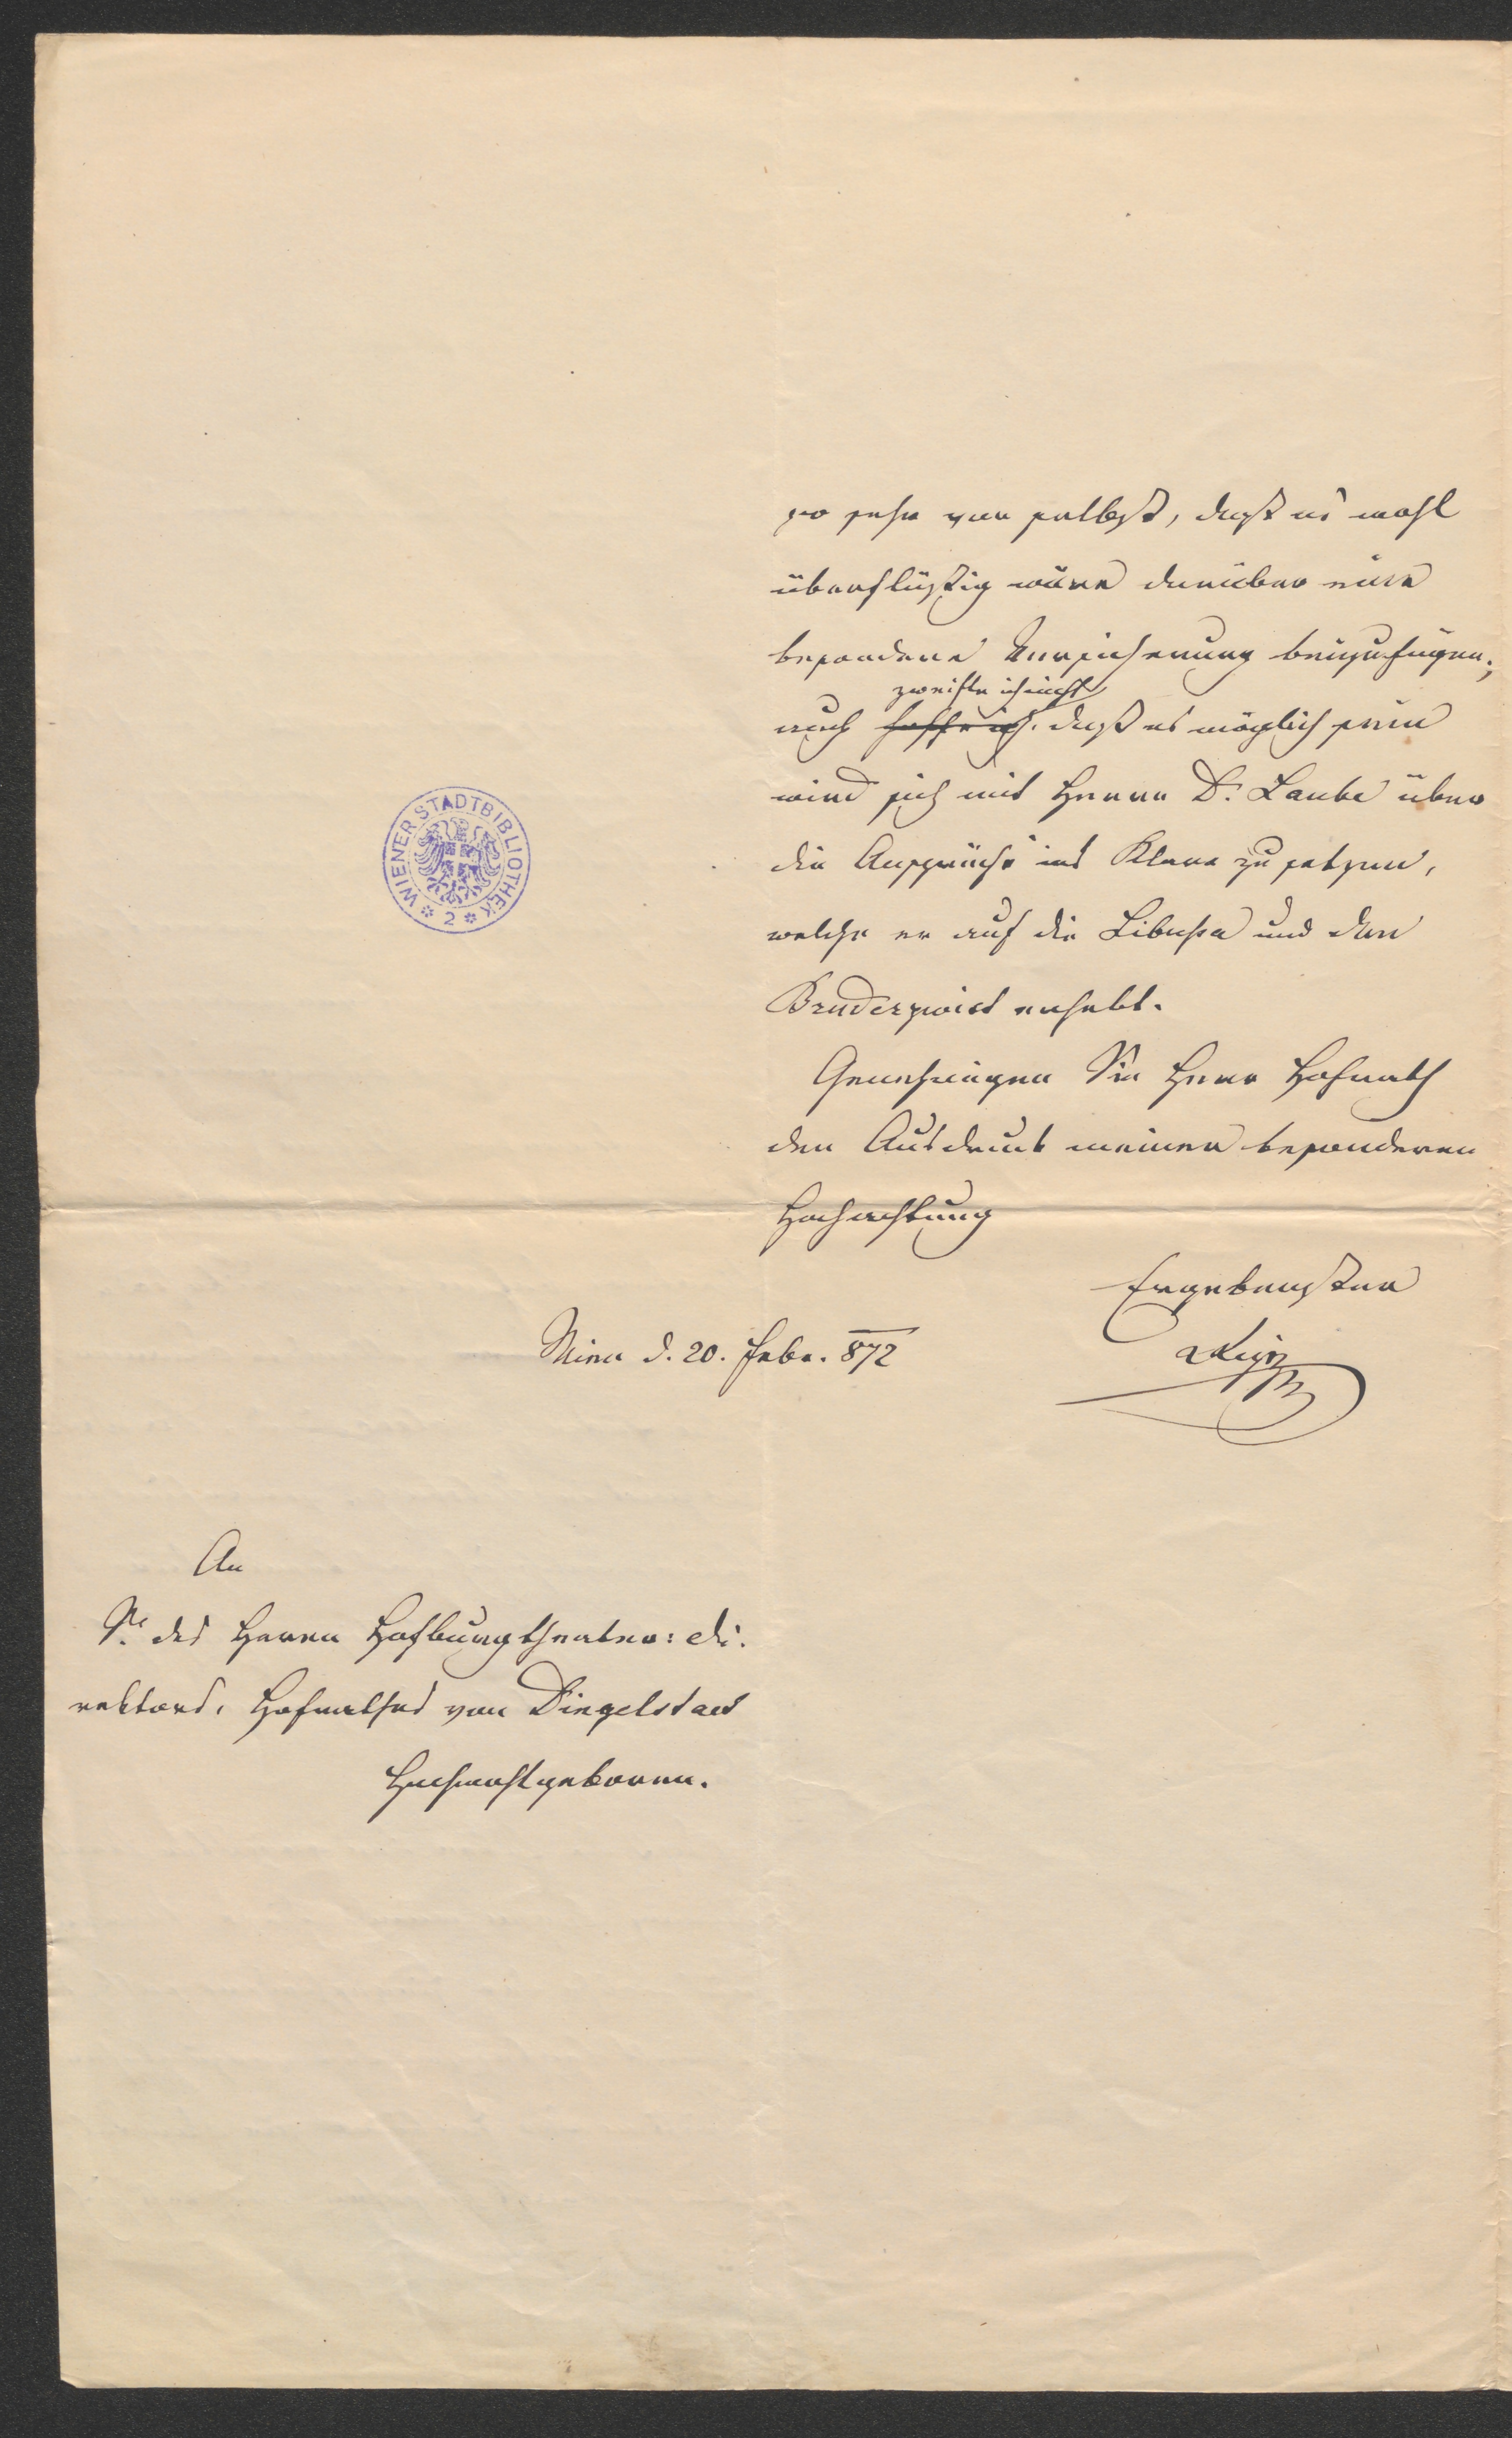 so sehr von selbst, daß es wohl
überflüßig wäre darüber eine
besondere Versicherung beizufügen;
zweifle ich nicht
auch hoffe ich, daß es möglich sein
wird sich mit Herrn Dr. Laube über
die Ansprüche ins Klare zu setzen,
welche er auf die Libussa und den
Bruderzwist erhebt.
Genehmigen Sie Herr Hofrath
den Ausdruck meiner besonderen
Hochachtung
Ergebenster
Wien d. 20. Febr. 872
An
Sr. des Herrn Hofburgtheater: Di-
rektors, Hofrathes von Dingelstedt
Hochwohlgeboren.
WIENER STADTBIBLIOTHEK
2